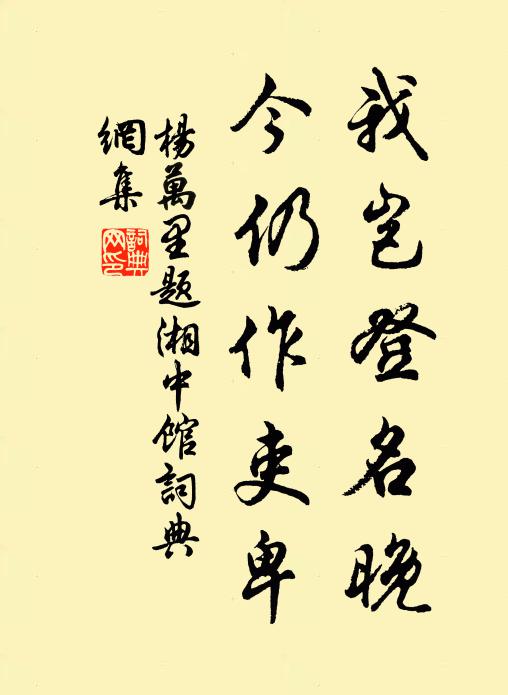 我岂登名晚
今仍作吏卑
楊萬里题湘中馆詞典
網集
詞典
网印